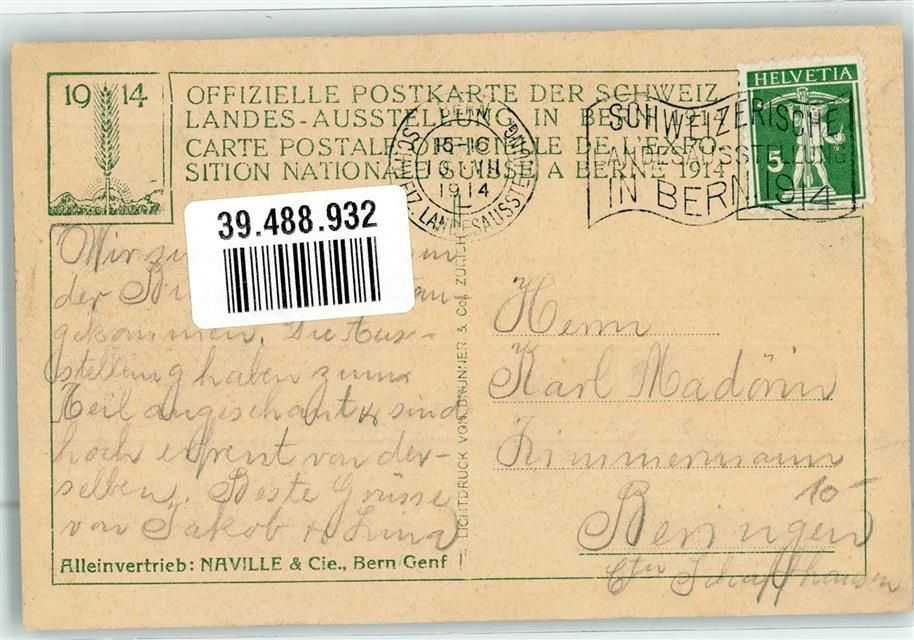 19 14
OFFIZIELLE POSTKARTE DER SCHWEIZ.
LANDES-AUSSTELLUNG IN BERN 1914
CARTE POSTALE OFFICIELLE DE L'EXPO-
SITION NATIONALE SUISSE A BERNE 1914
BERN
15-16
10 VII
1914
L
SCHWEIZ. LANDESAUSSTELLUNG
SCHWEIZERISCHE
LANDESAUSSTELLUNG
IN BERN 1914
HELVETIA
5
39.488.932
Wir
der
gekommen. Die Aus-
stellung haben zum
Teil angeschaut & sind
hoch erfreut von der-
selben. Beste Grüsse
von Jakob & Lina
LICHTDRUCK VON BRUNNER & Co. ZÜRICH
Herrn
Karl Madörin
Zimmermann
10
Beringen
Ctn Schaffhausen
Alleinvertrieb: NAVILLE & Cie., Bern/Genf